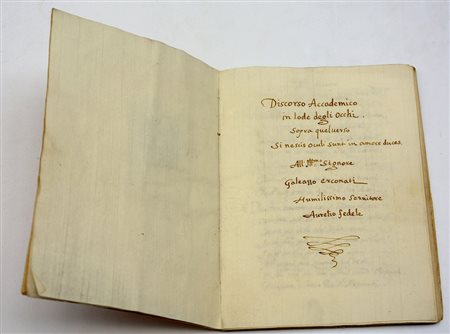 Discorso Accademico
in lode degli Occhi.
Sopra quel verso
Si nescis Oculi sunt in amore duces.
All' Ill.mo Signore
Galeazzo Arconati
Humilissimo Servitore
Aurelio Fedele